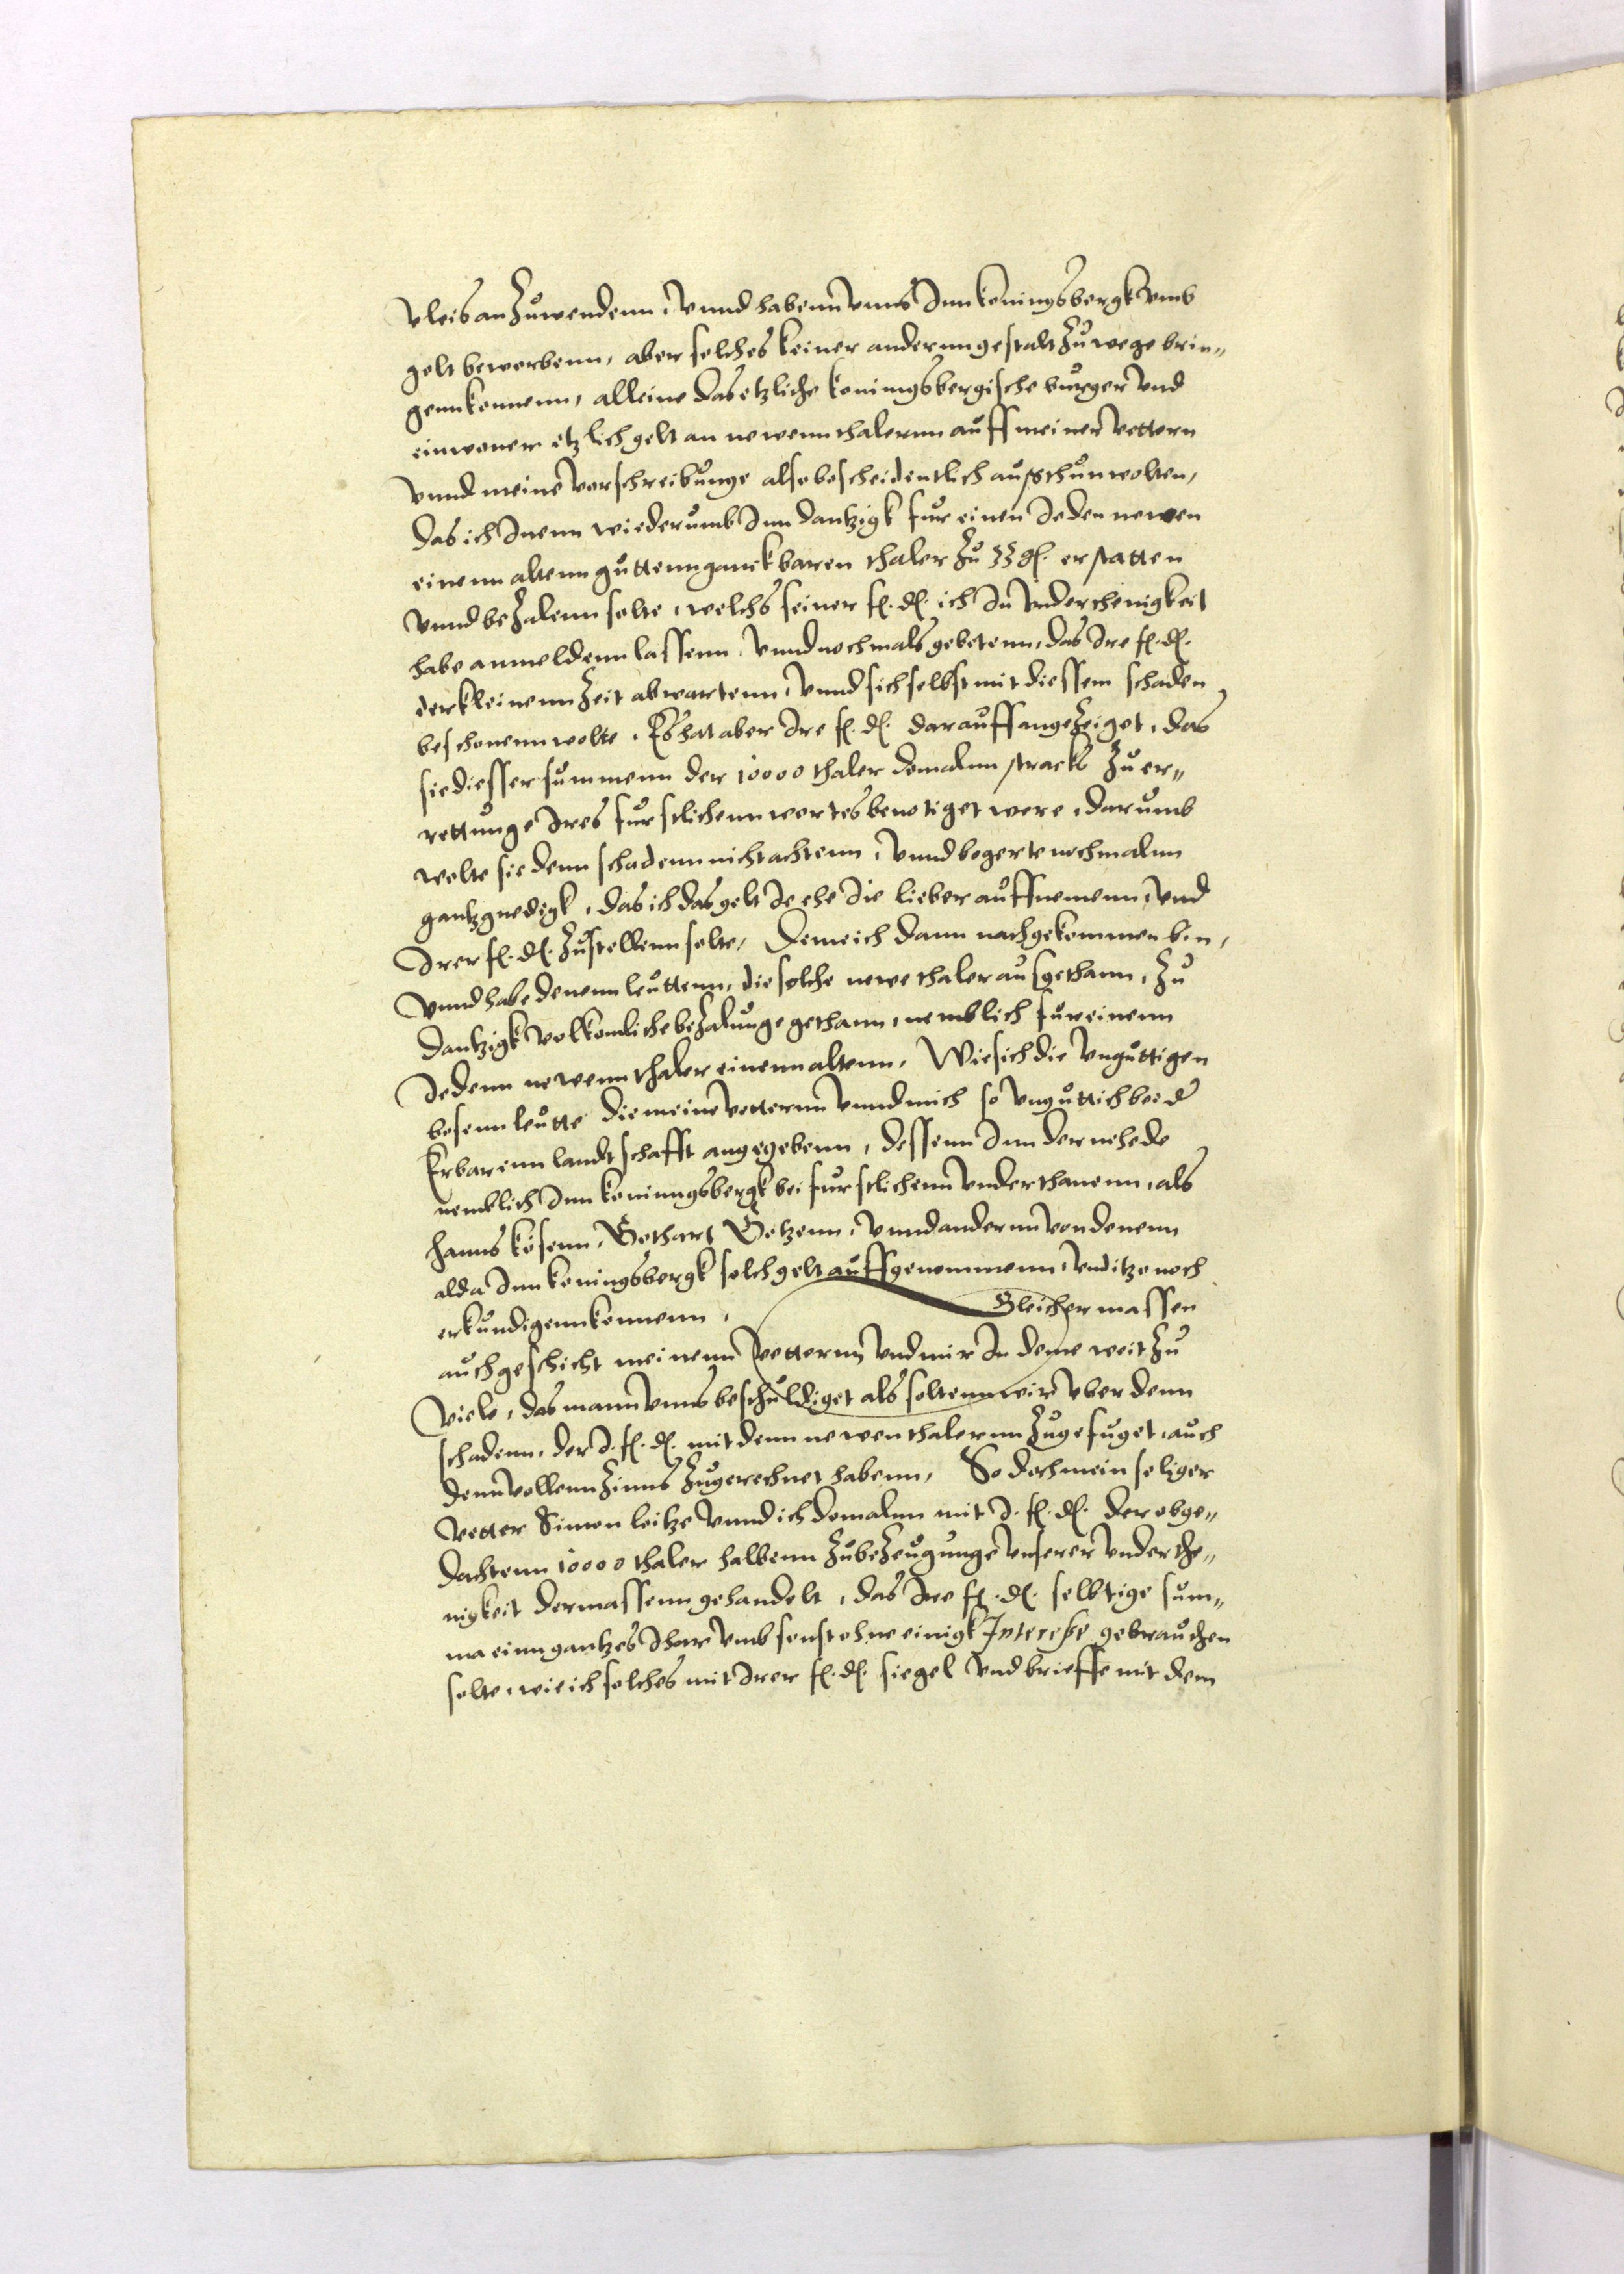 vleis anzuwendenn, vnnd habenn vnns Inn konigsbergk vmb
gelt beworbenn, aber solches keiner anderenn gestalt zuwege brin„
genn konnenn, alleine das etzliche konnigsbergische burger vnd
einwoner etzlich gelt an newenn thalernn auff meiner vettern
vnnd meine vorschreibunge also bescheidentlich außthun wolten,
das ich Inenn wiederumb Inn dantzigk fur einen Jeden newen
einenn altenn guttenn ganckbaren thaler zu 33 gl. erstatten
vnnd bezalenn solte, welchs seiner fl. dl. ich In vnderthenigkeit
habe anmeldenn lassenn, vnnd nochmals gebetenn, das Ire fl. dl.
der kleinenn zeit abwartenn, vnnd sich selbst mit diessem schaden
beschonenn wolte, Es hat aber Ire fl. dl. darauff angezeiget, das
sie diesser summenn der 10000 thaler domalnn stracks zu er„
rettunge Ires furstlichenn wortes benotiget were, darumb
wolte sie denn schadenn nicht achtenn, vnnd begerte nochmalnn
gantz gnedigk, das ich das gelt Je ehe Jie lieber auffnemenn, vnd
Irer fl. dl. zustellenn solte, Deme ich dann nachgekommen bin,
vnnd habe denenn leuttenn, die solche newe thaler ausgethann, zu
dantzigk volkomliche bezalunge gethann, nemblich fur einenn
Jedenn newenn thaler einenn altenn, Wie sich die vnguttigen
bosenn leutte die meine vetternn vnnd mich so vnguttich bei der
Erbarenn landtschafft angegebenn, dessenn Inn der nehede
nemblich Inn konningsbergk bei furstlichenn vnderthanenn, als
hanns kosenn, Gothart Gotzenn, vnnd anderun von denenn
alda Inn koningsbergk solch gelt auffgenommenn, vnd itze noch
erkundigenn konnenn, Gleicher massen
auch geschicht meinenn vetternn vnd mir In deme weit zu
viele, das mann vnns beschuldiget als soltenn wir vber denn
schadenn, der I. fl. dl. mit denn newen thalernn zugefuget, auch
denn vollenn zinns zugerechnet habenn, So doch mein seliger
vetter Simon loitze vnnd ich domalnn mit I. fl. dl. der obge„
dachtenn 10000 thaler halbenn zubezeugunge vnserer vnderthe„
nigkeit dermassenn gehandelt, das Ire fl. dl. selbtige sum„
ma einn gantzes Jhar vmb sonst ohne einigk Interesse gebrauchen
solte, wie ich solches mit Irer fl. dl. siegel vnd brieffe mit dem